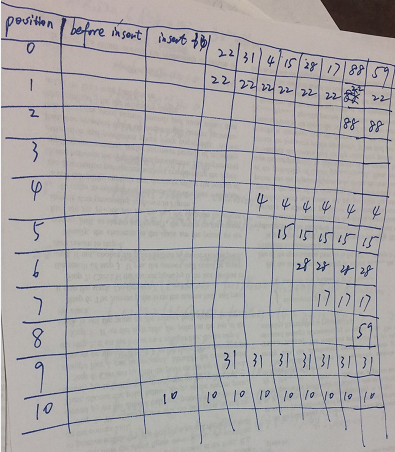 position before insert insert 22 31 4 15 28 17 88 59
0
1 22 22 22 22 22 22 22 22
2 88 88
3
4 4 4 4 4 4 4
5 15 15 15 15 15
6 28 28 28 28
7 17 17 17
8 59
9 31 31 31 31 31 31 31
10 10 10 10 10 10 10 10 10 10